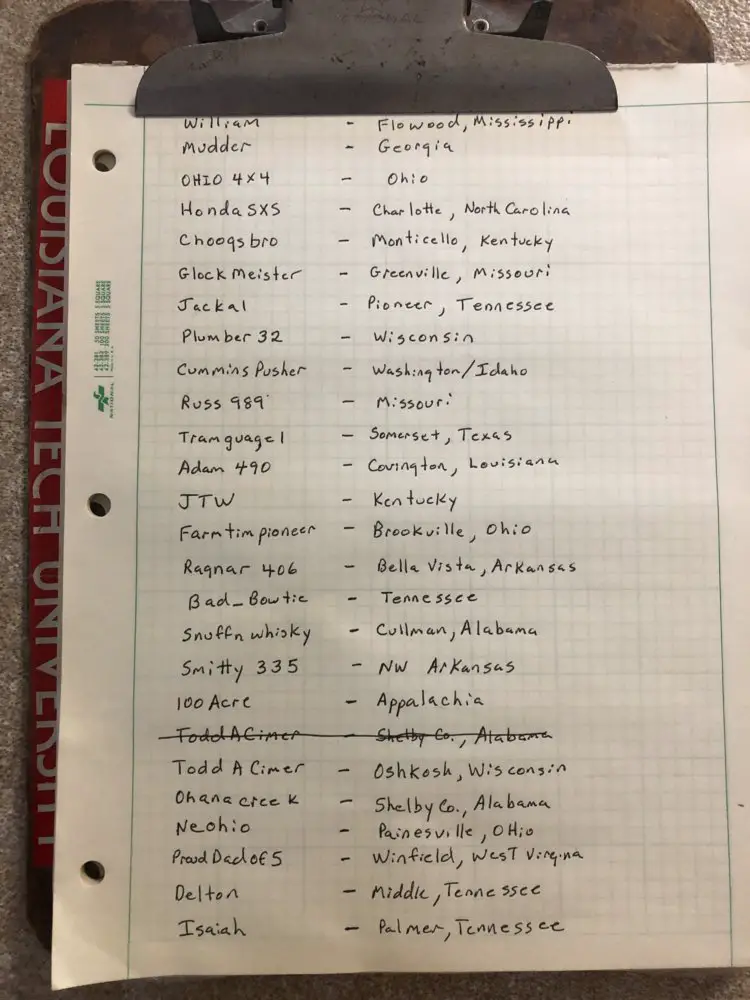 William - Flowood, Mississippi
Mudder - Georgia
OHIO 4x4 - Ohio
Honda SXS - Charlotte, North Carolina
Chooqsbro - Monticello, Kentucky
Glock Meister - Greenville, Missouri
Jackal - Pioneer, Tennessee
Plumber 32 - Wisconsin
Cummins Pusher - Washington/Idaho
Russ 989 - Missouri
Tramguage1 - Somerset, Texas
Adam 490 - Covington, Louisiana
JTW - Kentucky
Farmtimpioneer - Brookville, Ohio
Ragnar 406 - Bella Vista, Arkansas
Bad_Bowtie - Tennessee
Snuffn whisky - Cullman, Alabama
Smitty 335 - NW Arkansas
100 Acre - Appalachia
Todd A Cimer - Shelby Co., Alabama
Todd A Cimer - Oshkosh, Wisconsin
Ohana creek - Shelby Co., Alabama
Neohio - Painesville, OHio
Proud Dad of 5 - Winfield, West Virgina
Delton - Middle, Tennessee
Isaiah - Palmer, Tennessee
LOUISIANA TECH UNIVERSITY